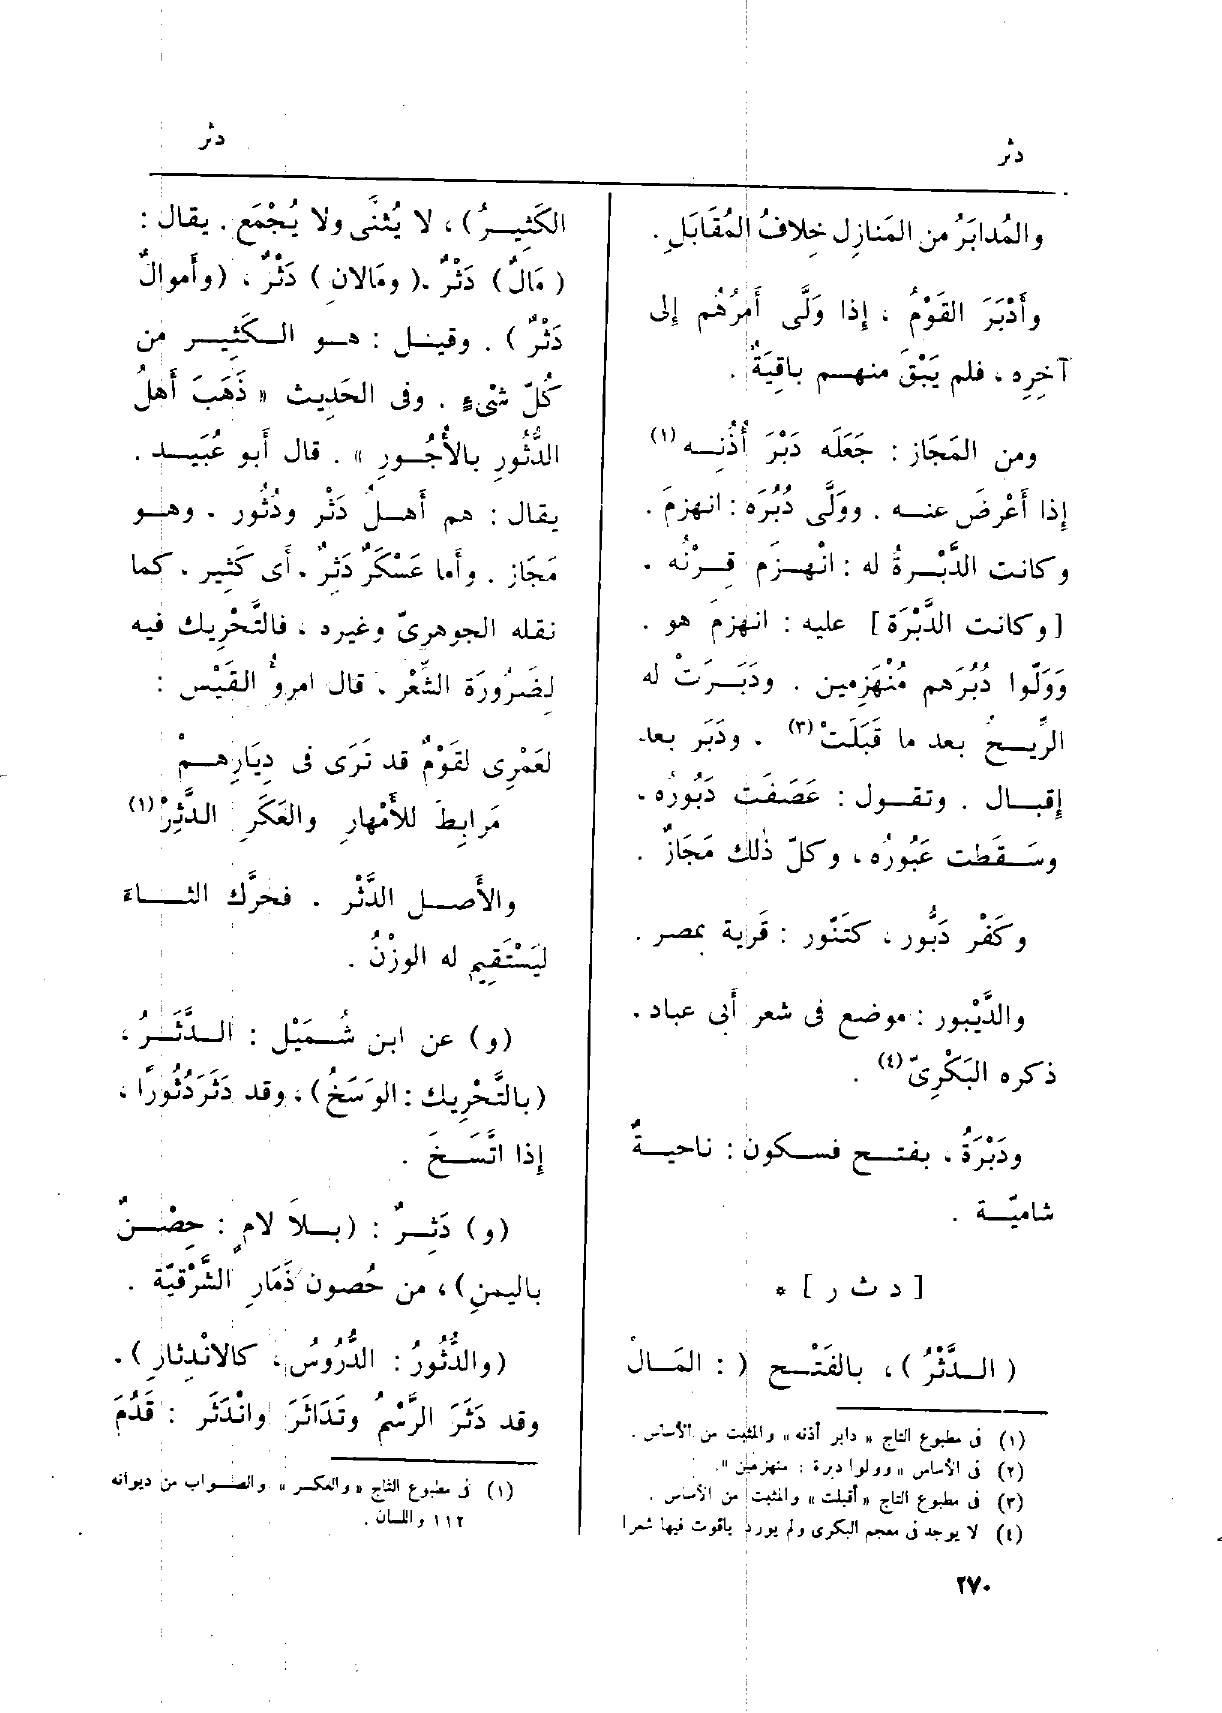 دثر
دثر
والمُدابَرُ من المَنازِل خِلافُ المُقَابَلِ .
وأَدْبَرَ القَوْمُ ، إذا وَلَّى أَمرُهُم إلى
آخِرِه ، فلم يَبْقَ منهم باقِيَةٌ .
ومن المَجَاز : جَعَلَه دَبْرَ أُذُنِه (١)
إذا أَعْرَضَ عنه . ووَلَّى دُبُرَه : انهزمَ .
وكانت الدَّبْرةُ له : انْهزَم قِرْنُه .
[وكانت الدَّبْرَة] عليه : انهزمَ هو .
وَوَلَّوا دُبُرَهم مُنْهَزِمين . ودَبَرَتْ له
الرِّيحُ بعد ما قَبَلَتْ (٣) . ودَبَر بعد
إقبال . وتقول : عَصَفَت دَبُورُه .
وسَقَطت عَبُورُه ، وكلّ ذٰلك مَجَازٌ .
وكَفْر دَبُّور ، كتَنّور : قَرية بمصر .
والدَّيْبور : موضع فى شعر أَبى عباد .
ذكره البَكْرِىّ (٤) .
ودَبْرَةُ ، بفتح فسكون : ناحيةٌ
شاميّة .
[ د ث ر ] *
( الدَّثْرُ ) ، بالفَتْح ( : المَالُ
(١) فى مطبوع التاج « دابر أذنه » والمثبت من الأساس .
(٢) فى الأساس « وولوا دبرة : منهزمين » .
(٣) فى مطبوع التاج « أقبلت » والمثبت من الأساس .
(٤) لا يوجد فى معجم البكرى ولم يورد ياقوت فيها شعرا
الكَثِيرُ) ، لا يُثنَّى ولا يُجْمَع . يقال :
( مَالٌ ) دَثْرٌ .( ومَالان ) دَثْرٌ ، (وأَموالٌ
دَثْرٌ ) . وقيل : هو الكَثِير من
كُلّ شْىءٍ . وفى الحَدِيث « ذَهَبَ أَهلُ
الدُّثُورِ بالأُجُورِ » . قال أَبو عُبَيد .
يقال : هم أَهلُ دَثْر ودُثُور . وهو
مَجَاز . وأَما عَسْكَرٌ دَثِرٌ . أَى كَثير . كما
نقله الجوهرىّ وغيره ، فالتَّحْرِيك فيه
لِضَرُورَة الشِّعْر ، قال امرؤُ القَيْس :
لعَمْرِى لقَوْمٌ قد تَرَى فى دِيَارِهمْ
مَرابِطَ للأَمْهارِ والعَكَرِ الدَّثِرْ (١)
والأَصل الدَّثْر . فحرَّك الثاءَ
ليَسْتَقِيم له الوزْنُ .
(و) عن ابن شُمَيْل : الدَّثَرُ ،
(بالتَّحْرِيك : الوَسَخُ) ، وقد دَثَرَ دُثُورًا ،
إذا اتَّسَخَ .
(و) دَثِرٌ : (بلاَ لامٍ : حِصْنٌ
باليمنِ) ، من حُصون ذَمَارِ الشَّرْقيّة .
(والدُّثُورُ : الدُّرُوسُ ، كالانْدِثارِ) .
وقد دَثَرَ الرَّسْمُ وتَدَاثَرَ وانْدَثَر : قَدُمَ
(١) فى مطبوع التاج « والعكر » والصواب من ديوانه
١١٢ واللسان .
٢٧٠